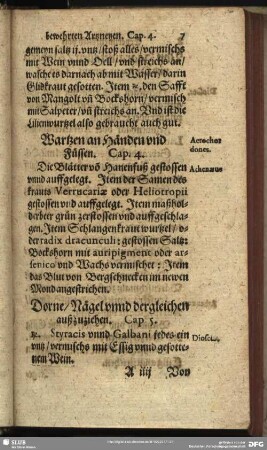 bewehrten Artzneyen. Cap. 4. 7
gemeyn saltz ij. untz/ stoß alles/ vermischs
mit Wein vnnd Oell/ vnd streichs an/
wasche es darnach ab mit Wasser/ darin
Glidkraut gesotten. Item ꝛc. den Safft
von Mangolt vñ Bockshorn/ vermisch
mit Salpeter/ vñ streichs an. Vnd ist die
Lilienwurtzel also gebraucht auch gut.
Wartzen an Händen vnd
Füssen. Cap. 4.
Aerochordones.
Die Blätter võ Hanenfuß gestossen
vnnd auffgelegt. Item der Samen des
krauts Verrucariæ oder Heliotropii
gestossen vnd auffgelegt. Item maßholderbeer
grün zerstossen vnd auffgeschlagen.
Item Schlangenkraut wurtzel/ oder
radix dracunculi: gestossen Saltz:
Bockshorn mit auripigment oder arsenico
vnd Wachs vermischet: Item
das Blut von Bergschnecken im newen
Mond angestrichen.
Dorne/ Nägel vnnd dergleichen
außzuziehen. Cap 5.
ꝛc. Styracis vnnd Galbani jedes ein
vntz/ vermischs mit Essig vnnd gesottenem
Wein.
A iiij Von
SLUB